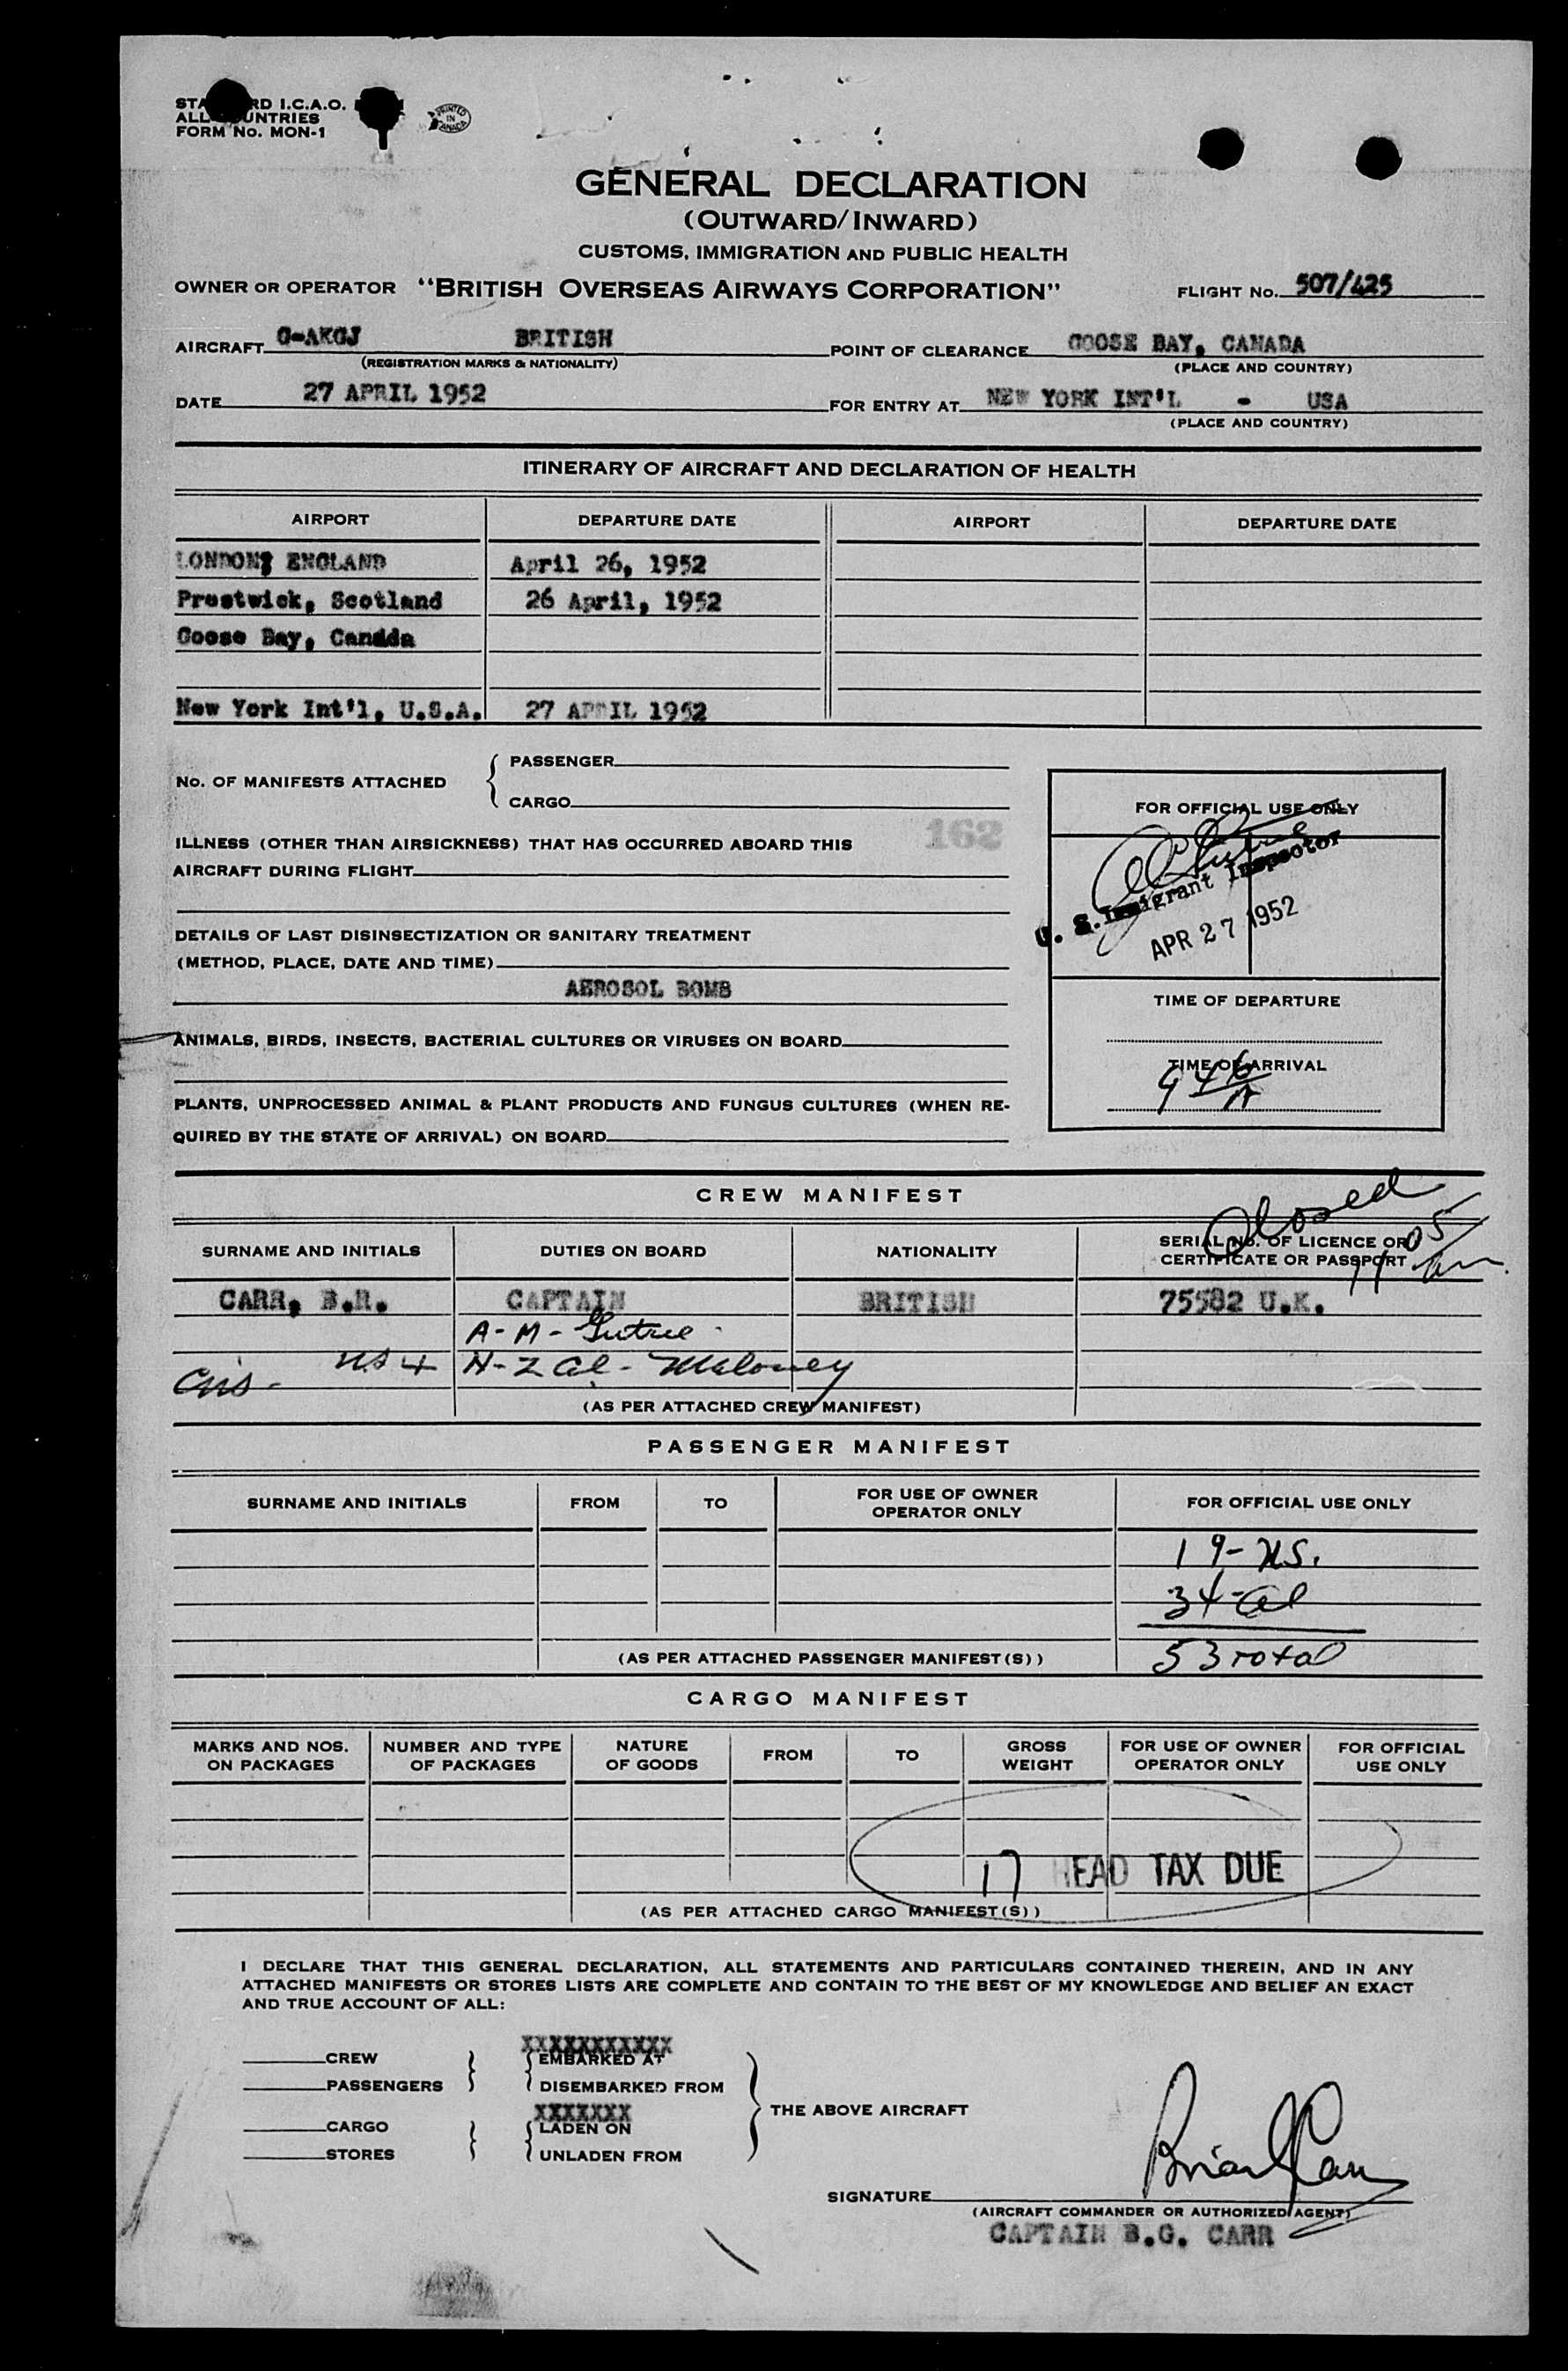 STA RD I.C.A.O.
ALL UNTRIES
FORM No. MON-1
PRINTED IN CANADA
GENERAL DECLARATION
(OUTWARD/INWARD)
CUSTOMS, IMMIGRATION AND PUBLIC HEALTH
OWNER OR OPERATOR "BRITISH OVERSEAS AIRWAYS CORPORATION" FLIGHT No. 507/425
AIRCRAFT G-AKGJ BRITISH POINT OF CLEARANCE GOOSE BAY, CANADA
(REGISTRATION MARKS & NATIONALITY) (PLACE AND COUNTRY)
DATE 27 APRIL 1952 FOR ENTRY AT NEW YORK INT'L - USA
(PLACE AND COUNTRY)
ITINERARY OF AIRCRAFT AND DECLARATION OF HEALTH
AIRPORT DEPARTURE DATE AIRPORT DEPARTURE DATE
LONDON; ENGLAND April 26, 1952
Prestwick, Scotland 26 April, 1952
Goose Bay, Canada
New York Int'l, U.S.A. 27 APRIL 1952
No. OF MANIFESTS ATTACHED { PASSENGER
CARGO
162
ILLNESS (OTHER THAN AIRSICKNESS) THAT HAS OCCURRED ABOARD THIS
AIRCRAFT DURING FLIGHT
DETAILS OF LAST DISINSECTIZATION OR SANITARY TREATMENT
(METHOD, PLACE, DATE AND TIME)
AEROSOL BOMB
ANIMALS, BIRDS, INSECTS, BACTERIAL CULTURES OR VIRUSES ON BOARD
PLANTS, UNPROCESSED ANIMAL & PLANT PRODUCTS AND FUNGUS CULTURES (WHEN RE-
QUIRED BY THE STATE OF ARRIVAL) ON BOARD
FOR OFFICIAL USE ONLY
U. S. Immigrant Inspector
APR 27 1952
TIME OF DEPARTURE
TIME OF ARRIVAL
9 46 A
CREW MANIFEST
Closed
11 05 am.
SURNAME AND INITIALS DUTIES ON BOARD NATIONALITY SERIAL NO. OF LICENCE OR
CERTIFICATE OR PASSPORT
CARR, B.R. CAPTAIN BRITISH 75582 U.K.
A-M-
US 4 N-2 al- Maloney
(AS PER ATTACHED CREW MANIFEST)
PASSENGER MANIFEST
SURNAME AND INITIALS FROM TO FOR USE OF OWNER
OPERATOR ONLY FOR OFFICIAL USE ONLY
19-US.
34-al
53 total
(AS PER ATTACHED PASSENGER MANIFEST(S))
CARGO MANIFEST
MARKS AND NOS. NUMBER AND TYPE NATURE FROM TO GROSS FOR USE OF OWNER FOR OFFICIAL
ON PACKAGES OF PACKAGES OF GOODS WEIGHT OPERATOR ONLY USE ONLY
17 HEAD TAX DUE
(AS PER ATTACHED CARGO MANIFEST(S))
I DECLARE THAT THIS GENERAL DECLARATION, ALL STATEMENTS AND PARTICULARS CONTAINED THEREIN, AND IN ANY
ATTACHED MANIFESTS OR STORES LISTS ARE COMPLETE AND CONTAIN TO THE BEST OF MY KNOWLEDGE AND BELIEF AN EXACT
AND TRUE ACCOUNT OF ALL:
XXXXXXXXXXX
CREW EMBARKED AT
PASSENGERS DISEMBARKED FROM
XXXXXXX THE ABOVE AIRCRAFT
CARGO LADEN ON
STORES UNLADEN FROM
SIGNATURE Brian G Carr
(AIRCRAFT COMMANDER OR AUTHORIZED AGENT)
CAPTAIN B.G. CARR